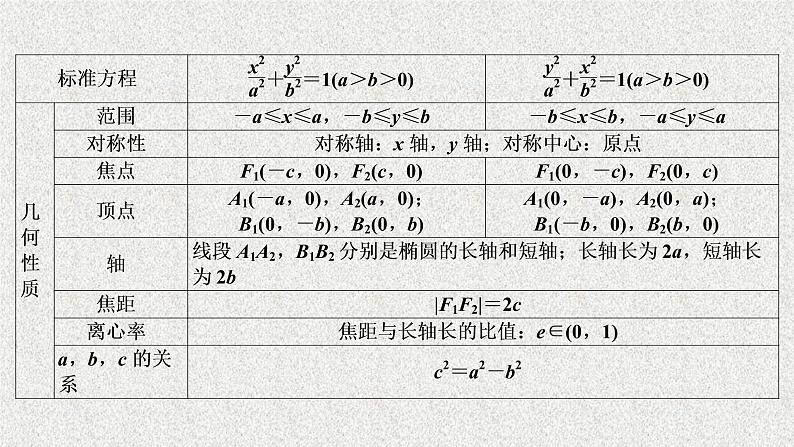 标准方程 x²/a²+y²/b²=1(a>b>0) y²/a²+x²/b²=1(a>b>0)
几何性质
范围 －a≤x≤a，－b≤y≤b －b≤x≤b，－a≤y≤a
对称性 对称轴：x 轴，y 轴；对称中心：原点
焦点 F₁(－c，0)，F₂(c，0) F₁(0，－c)，F₂(0，c)
顶点 A₁(－a，0)，A₂(a，0)； A₁(0，－a)，A₂(0，a)；
B₁(0，－b)，B₂(0，b) B₁(－b，0)，B₂(b，0)
轴 线段 A₁A₂，B₁B₂ 分别是椭圆的长轴和短轴；长轴长为 2a，短轴长
为 2b
焦距 |F₁F₂|＝2c
离心率 焦距与长轴长的比值：e∈(0，1)
a，b，c 的关
系 c²＝a²－b²